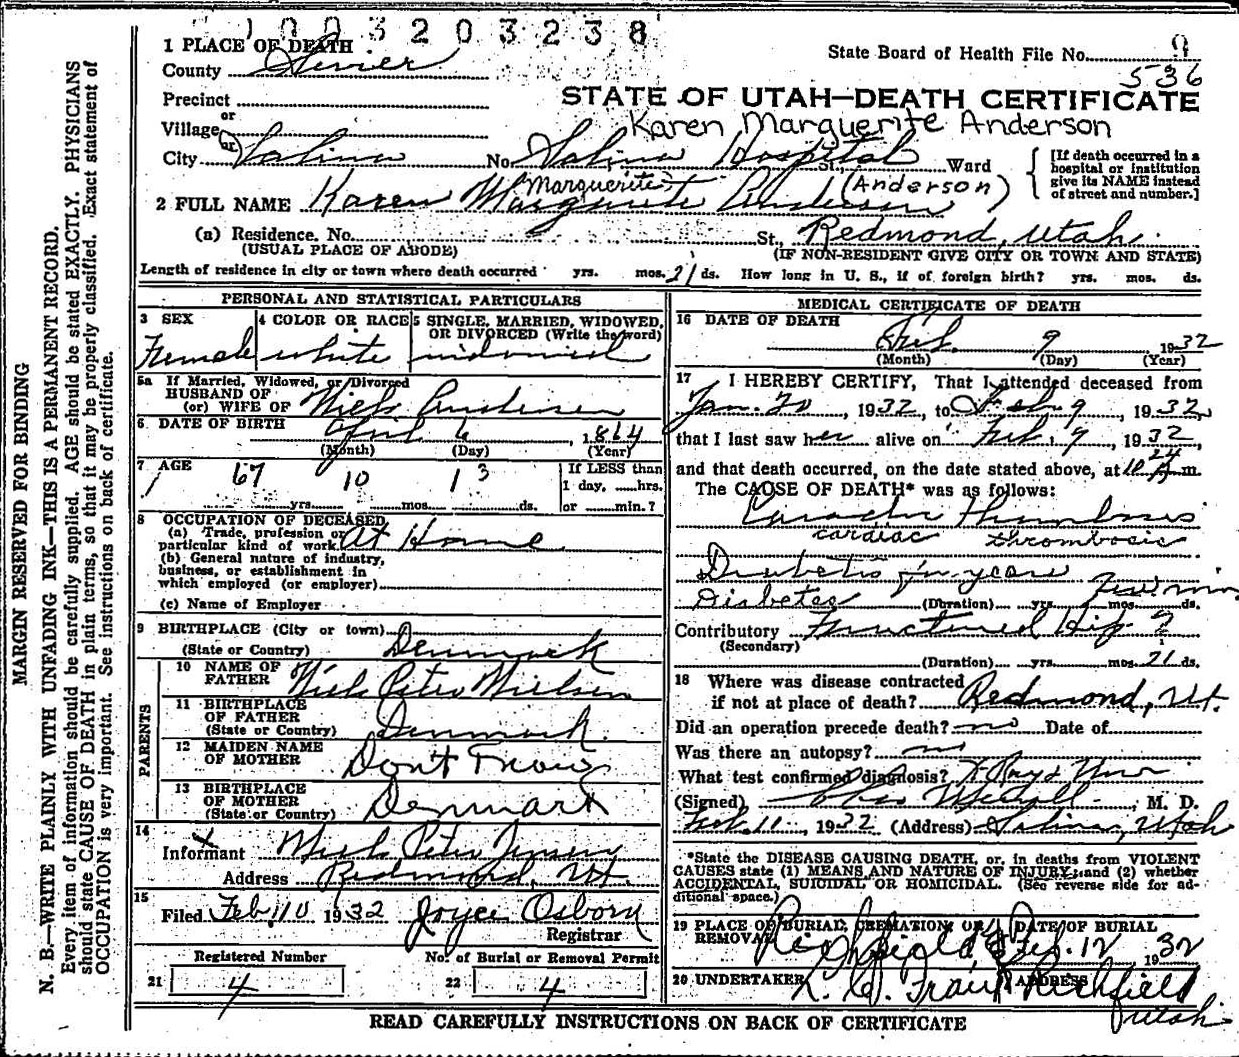 1003203238
1 PLACE OF DEATH
State Board of Health File No. 9
County Sevier
536
Precinct
STATE OF UTAH—DEATH CERTIFICATE
or
Village
Karen Marguerite Anderson
or
City Salina No. Salina Hospital St., Ward
[If death occurred in a hospital or institution give its NAME instead of street and number.]
Marguerite (Anderson)
2 FULL NAME Karen Marguerite Anderson
(a) Residence. No. St., Redmond, Utah.
(USUAL PLACE OF ABODE) (IF NON-RESIDENT GIVE CITY OR TOWN AND STATE)
Length of residence in city or town where death occurred yrs. mos. 21 ds. How long in U. S., if of foreign birth? yrs. mos. ds.
PERSONAL AND STATISTICAL PARTICULARS
3 SEX 4 COLOR OR RACE 5 SINGLE, MARRIED, WIDOWED, OR DIVORCED (Write the word)
Female white widowed
5a If Married, Widowed, or Divorced
HUSBAND OF
(or) WIFE OF Niels Andersen
6 DATE OF BIRTH April 6, 1864
(Month) (Day) (Year)
7 AGE 67 10 13
If LESS than
1 day, ......hrs.
yrs. mos. ds. or ......min.?
8 OCCUPATION OF DECEASED
(a) Trade, profession or
particular kind of work At Home
(b) General nature of industry,
business, or establishment in
which employed (or employer)
(c) Name of Employer
9 BIRTHPLACE (City or town)
(State or Country) Denmark
PARENTS
10 NAME OF
FATHER Niels Peter Nielsen
11 BIRTHPLACE
OF FATHER
(State or Country) Denmark.
12 MAIDEN NAME
OF MOTHER Don't Know
13 BIRTHPLACE
OF MOTHER
(State or Country) Denmark
14 x
Informant Niels Peter Jensen
Address Redmond, Ut.
15
Filed Feb 110 1932 Joyce Osborn
Registrar
Registered Number No. of Burial or Removal Permit
21 4 22 4
MEDICAL CERTIFICATE OF DEATH
16 DATE OF DEATH
Feb. 9 1932
(Month) (Day) (Year)
17 I HEREBY CERTIFY, That I attended deceased from
Jan. 20, 1932, to Feb 9, 1932,
that I last saw her alive on Feb. 9, 1932,
and that death occurred, on the date stated above, at 10 m.
The CAUSE OF DEATH* was as follows:
Cardiac Thrombosis
cardiac thrombosis
Diabetis for years
Diabetes (Duration) yrs. mos. ds. Few min
Contributory Fractured Hip ?
(Secondary)
(Duration) yrs. mos. 21 ds.
18 Where was disease contracted
if not at place of death? Redmond, Ut.
Did an operation precede death? no Date of
Was there an autopsy? no
What test confirmed diagnosis? X Rays
(Signed) M. D.
Feb. 11, 1932 (Address) Salina, Utah
*State the DISEASE CAUSING DEATH, or, in deaths from VIOLENT
CAUSES state (1) MEANS AND NATURE OF INJURY; and (2) whether
ACCIDENTAL, SUICIDAL OR HOMICIDAL. (See reverse side for additional space.)
19 PLACE OF BURIAL, CREMATION, OR REMOVAL DATE OF BURIAL
Richfield, Feb. 12 1932
20 UNDERTAKER ADDRESS
Richfield
Utah
READ CAREFULLY INSTRUCTIONS ON BACK OF CERTIFICATE
MARGIN RESERVED FOR BINDING
N. B.—WRITE PLAINLY WITH UNFADING INK—THIS IS A PERMANENT RECORD.
Every item of information should be carefully supplied. AGE should be stated EXACTLY. PHYSICIANS
should state CAUSE OF DEATH in plain terms, so that it may be properly classified. Exact statement of
OCCUPATION is very important. See instructions on back of certificate.